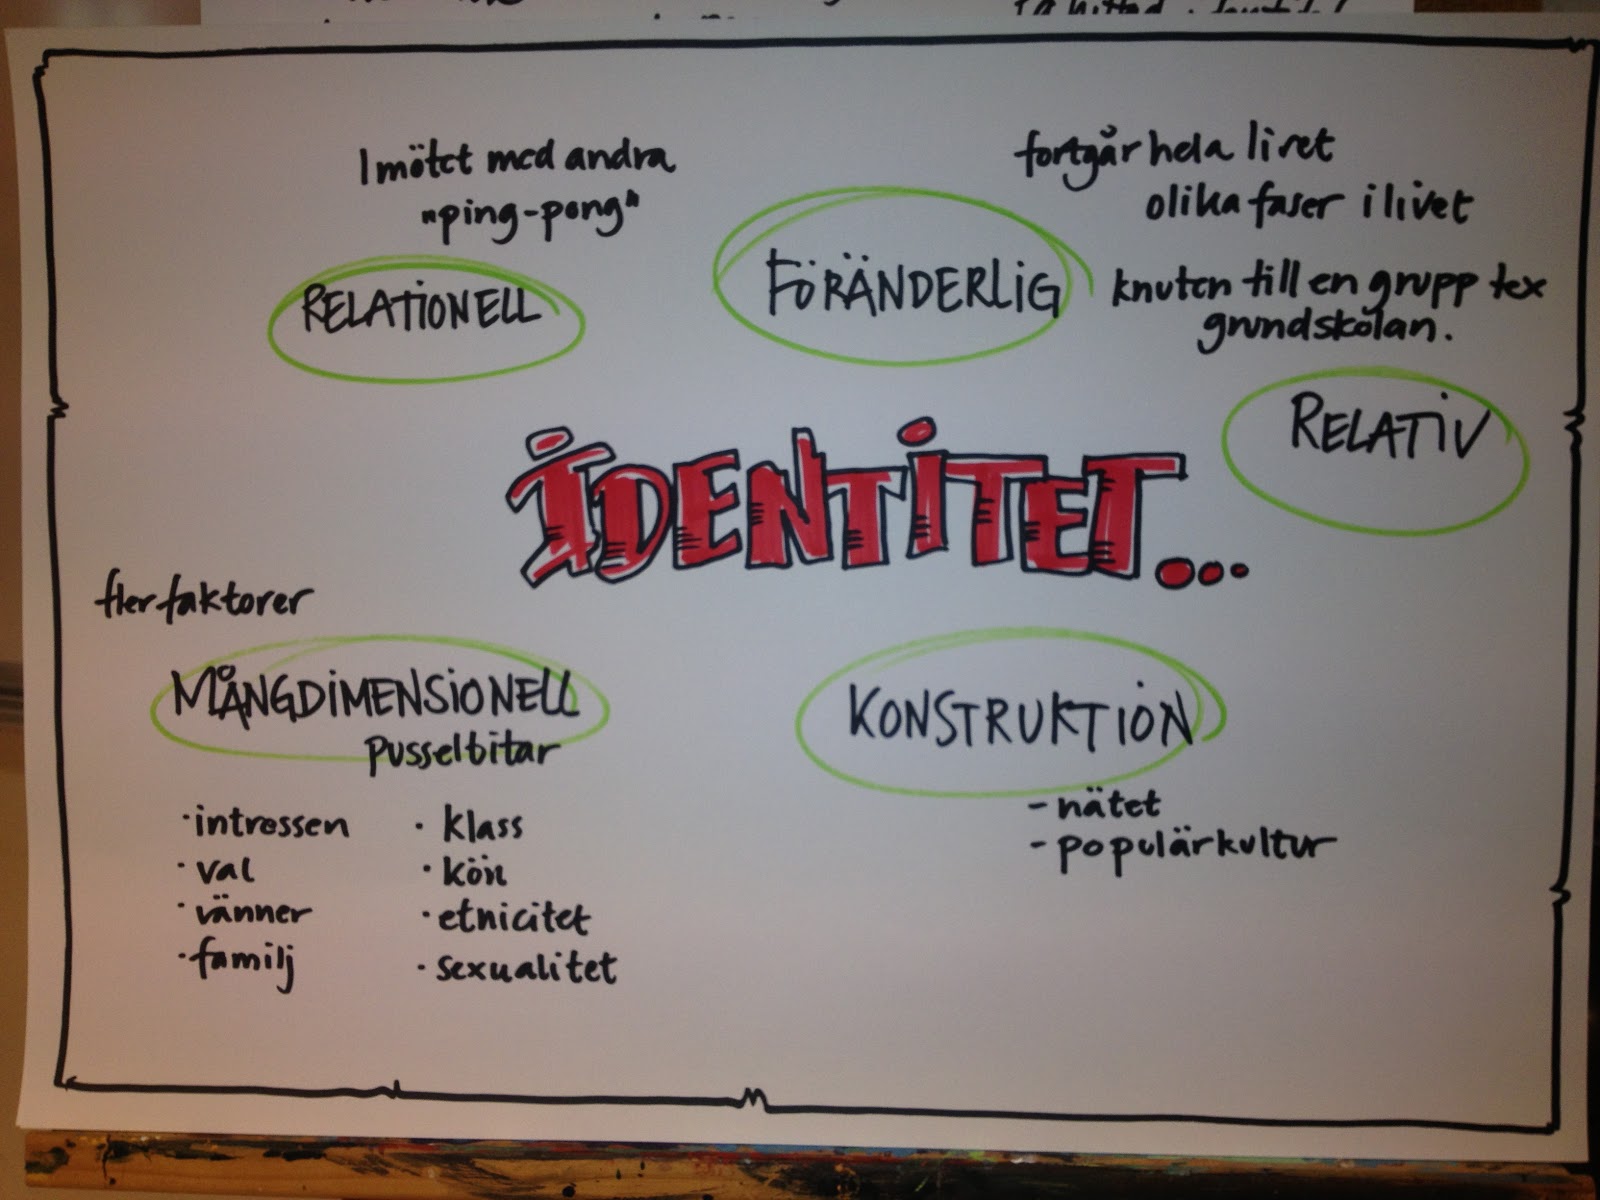 I mötet med andra
"ping-pong"
RELATIONELL
fortgår hela livet
olika faser i livet
FÖRÄNDERLIG
knuten till en grupp tex
grundskolan.
RELATIV
IDENTITET...
fler faktorer
MÅNGDIMENSIONELL
pusselbitar
· intressen
· val
· vänner
· familj
· klass
· kön
· etnicitet
· sexualitet
KONSTRUKTION
- nätet
- populärkultur